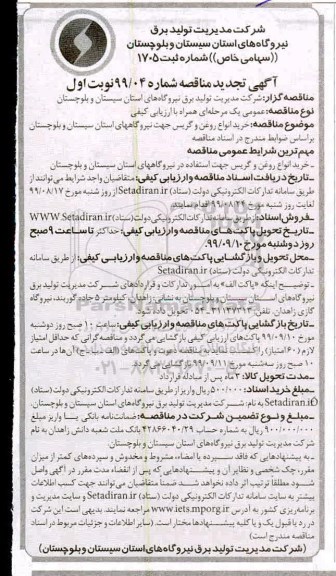 شرکت مدیریت تولید برق
نیروگاه‌های استان سیستان و بلوچستان
((سهامی خاص)) شماره ثبت ۱۷۰۵
آگهی تجدید مناقصه شماره ۹۹/۰۴ نوبت اول
مناقصه گزار: شرکت مدیریت تولید برق نیروگاه‌های استان سیستان و بلوچستان
نوع مناقصه: عمومی یک مرحله‌ای همراه با ارزیابی کیفی
موضوع مناقصه: خرید انواع روغن و گریس جهت نیروگاههای سیستان و بلوچستان
براساس ضوابط مندرج در اسناد مناقصه
مهم ترین شرایط عمومی مناقصه
ـ خرید انواع روغن و گریس جهت استفاده در نیروگاههای استان سیستان و بلوچستان
ـ تاریخ دریافت اسناد مناقصه و ارزیابی کیفی: متقاضیان واجد شرایط می‌توانند از
طریق سامانه تدارکات الکترونیکی دولت (ستاد) Setadiran.ir از روز شنبه مورخ ۹۹/۰۸/۱۷
لغایت روز شنبه مورخ اقدام نمایند.
ـ فروش اسناد: از طریق سامانه تدارکات الکترونیکی دولت (ستاد) WWW.Setadiran.ir
ـ تاریخ تحویل پاکت های مناقصه و ارزیابی کیفی: حداکثر تا ساعت ۹ صبح
روز دوشنبه مورخ ۹۹/۰۹/۱۰.
ـ محل تحویل و بازگشایی پاکت‌های مناقصه و ارزیابی کیفی: از طریق سامانه
تدارکات الکترونیکی دولت (ستاد) Setadiran.ir
ـ توضیح اینکه «پاکت الف» به امور تدارکات و قراردادهای شرکت مدیریت تولید برق
نیروگاه‌های استان سیستان و بلوچستان به نشانی: زاهدان، کیلومتر ۵ جاده گوربند، نیروگاه
گازی زاهدان، تلفن: تحویل داده شود.
ـ تاریخ بازگشایی پاکت‌های مناقصه و ارزیابی کیفی: ساعت ۱۰ صبح روز دوشنبه
مورخ ۹۹/۰۹/۱۰ پاکت‌های ارزیابی کیفی بازگشایی می گردد و مناقصه گرانی که حداقل امتیاز
لازم (۶۰ امتیاز) را کسب نمایند به مناقصه دعوت و پاکت‌های (الف، ب، ج) آن‌ها در ساعت
۱۰ صبح روز سه‌شنبه مورخ ۹۹/۰۹/۱۱ بازگشایی می گردد.
ـ مدت تحویل کالا: ماه پس از مبادله قرارداد
ـ مبلغ خرید اسناد: ۵۰۰/۰۰۰ ریال واریز از طریق سامانه تدارکات الکترونیکی دولت (ستاد)
Setadiran.ir به نام: شرکت مدیریت تولید برق نیروگاه‌های استان سیستان و بلوچستان.
ـ مبلغ و نوع تضمین شرکت در مناقصه: ضمانت‌نامه بانکی یا واریز مبلغ
۹۰۰/۰۰۰/۰۰۰ ریال به شماره حساب ۴۲۸۶۶۰۴۰/۲۹ بانک ملت شعبه دانش زاهدان به نام
شرکت مدیریت تولید برق نیروگاه‌های استان سیستان و بلوچستان
ـ به پیشنهادهایی که فاقد سپرده یا امضاء، مشروط و مخدوش و سپرده‌های کمتر از میزان
مقرر، چک شخصی و نظایر آن و پیشنهادهایی که پس از انقضاء مدت مقرر در آگهی واصل
شود مطلقا ترتیب اثر داده نخواهد شد. ضمناً متقاضیان می‌توانند جهت کسب اطلاعات
بیشتر به سایت سامانه تدارکات الکترونیکی دولت (ستاد) Setadiran.ir و سایت مدیریت و
برنامه‌ریزی کشور به آدرس www.iets.mporg.ir مراجعه نمایند. بدیهی است این شرکت
در رد یا قبول یک و یا کلیه پیشنهادها مختار است. (سایر اطلاعات و جزئیات مربوط در اسناد
مناقصه مندرج است)
(شرکت مدیریت تولید برق نیروگاه‌های استان سیستان و بلوچستان)